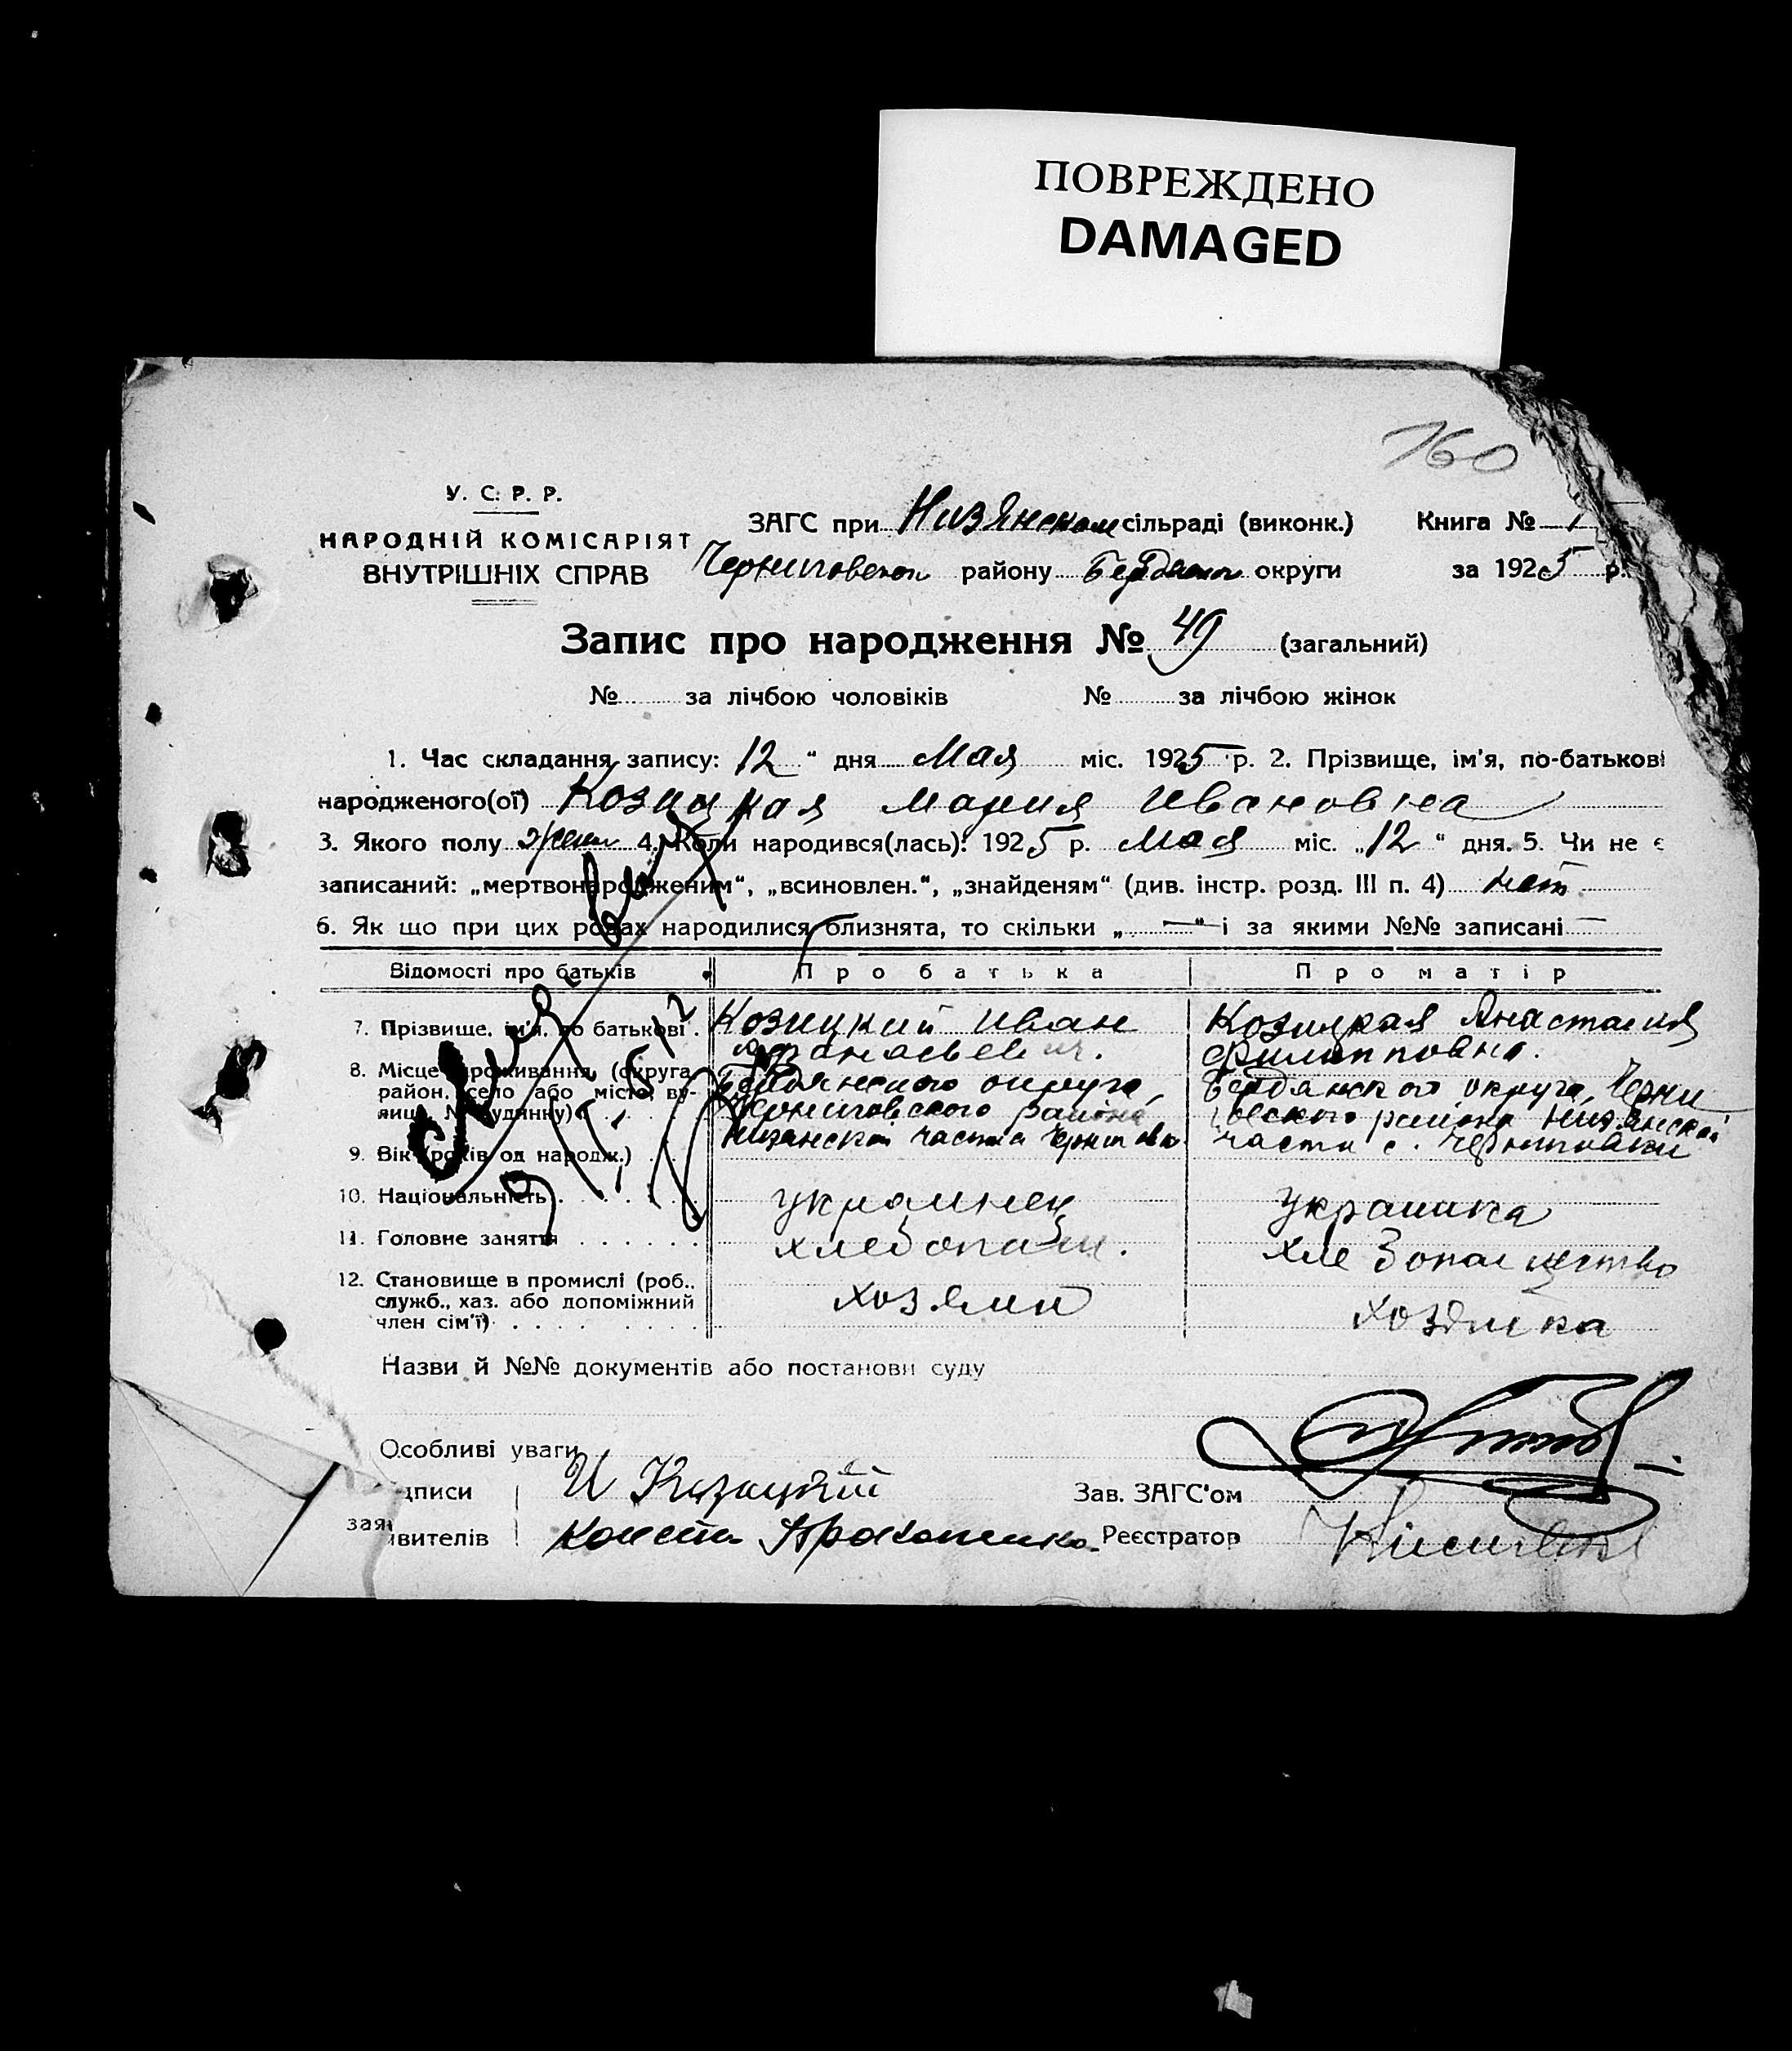 ПОВРЕЖДЕНО
DAMAGED
160
У. С. Р. Р.
НАРОДНІЙ КОМІСАРІЯТ
ВНУТРІШНІХ СПРАВ
ЗАГС при Низянском сільраді (виконк.) Книга № 1
Черниговском району Бердянск округи за 1925 р.
Запис про народження № 49 (загальний)
№ за лічбою чоловіків № за лічбою жінок
1. Час складання запису: 12 " дня Мая міс. 1925 р. 2. Прізвище, ім'я, по-батькові
народженого(ої) Козицкая Мария Ивановна
3. Якого полу жен 4. Коли народився(лась): 1925 р. Мая міс. „12" дня. 5. Чи не є
записаний: „мертвонародженим", „всиновлен.", „знайденям" (див. інстр. розд. III п. 4) нет
6. Як що при цих родах народилися близнята, то скільки „—" і за якими №№ записані —
Відомості про батьків Про батька Про матір
7. Прізвище, ім'я, по батькові Козицкий Иван Козицкая Анастасия
Афанасьевич. Филипповна.
8. Місце проживання, (округа, Бердянского округа, Бердянского округа, Черни
район, село або місто, ву- Черниговского района говского района Низянской
лиця, № будинку) Низянской части с Черниговк. части с. Черниговки
9. Вік (років од народж.)
10. Національність украинец украинка
11. Головне заняття хлебопаш. хлебопашество
12. Становище в промислі (роб.,
служб., хаз. або допоміжний хозяин хозяйка
член сім'ї)
Назви й №№ документів або постанови суду
Особливі уваги
дписи И Козицкий Зав. ЗАГС'ом
заявителів Реєстратор